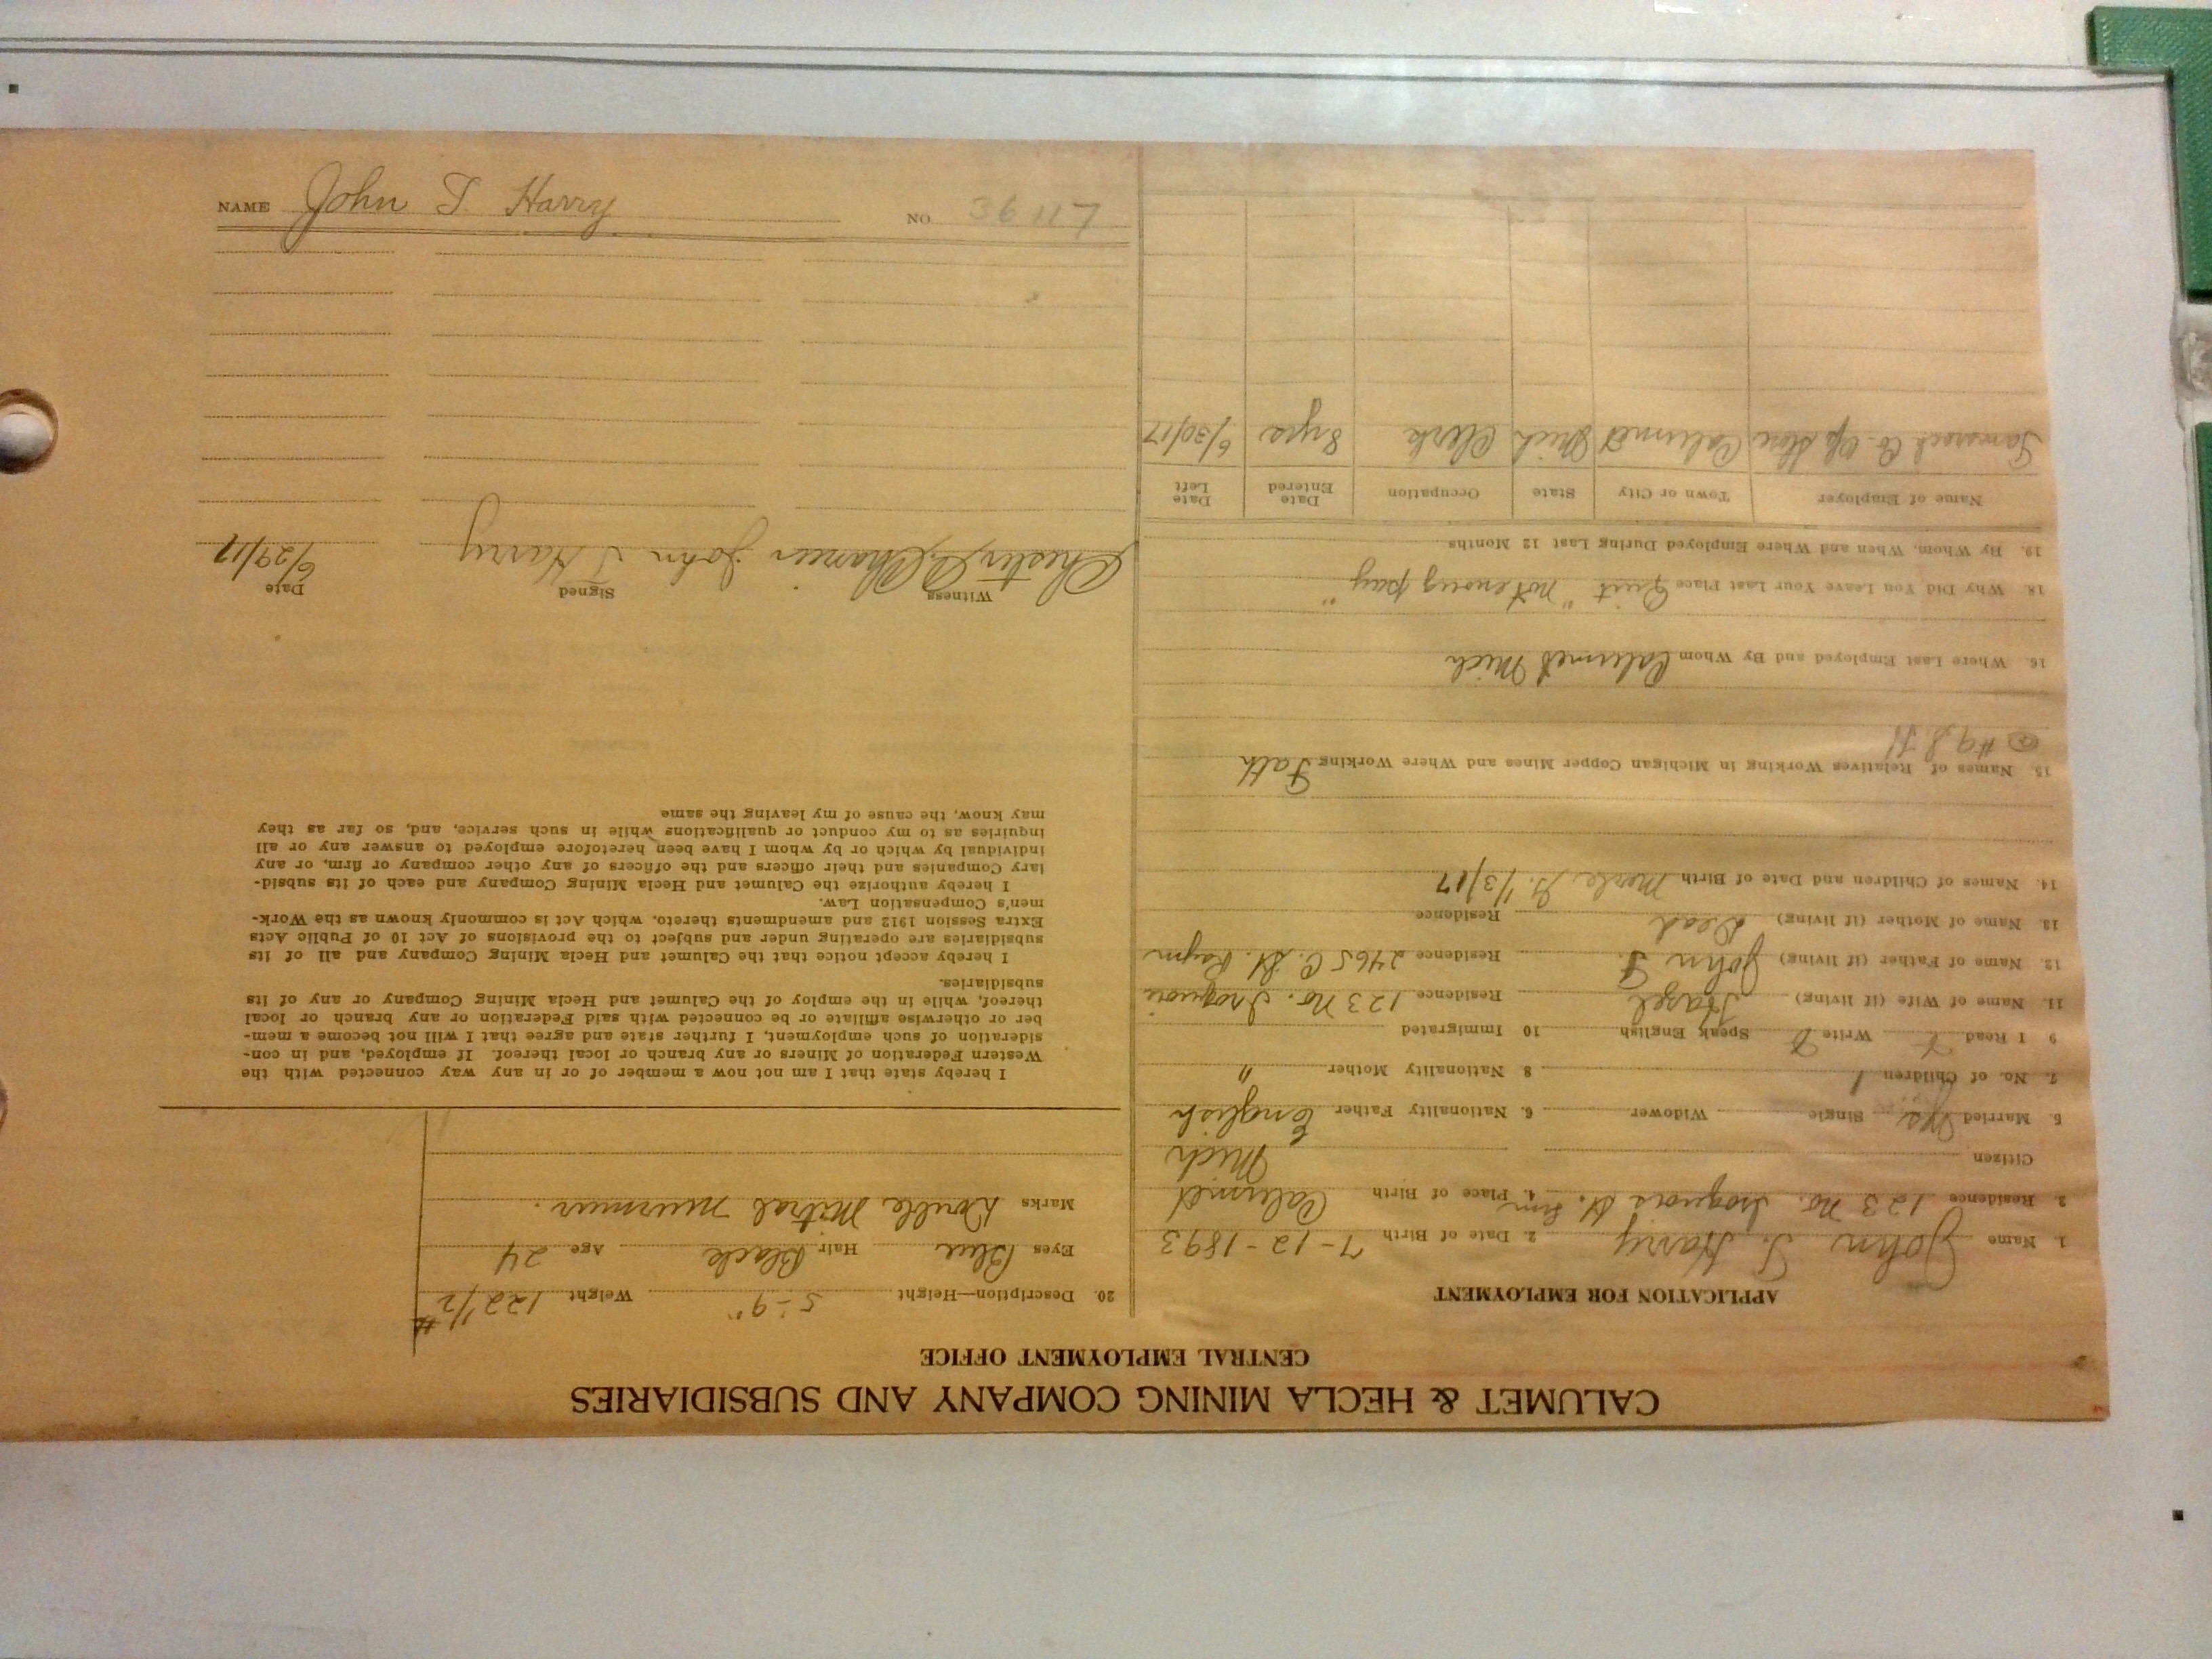 CALUMET & HECLA MINING COMPANY AND SUBSIDIARIES
CENTRAL EMPLOYMENT OFFICE
APPLICATION FOR EMPLOYMENT
1. Name John T. Harry 2. Date of Birth 7-12-1893
3. Residence 123 No. Iroquois St. 4. Place of Birth Calumet
Citizen Mich
5. Married Yes Single Widower 6. Nationality Father English
7. No. of Children 1 8 Nationality Mother "
9 I Read Write Speak English 10 Immigrated
11. Name of Wife (if living) Hazel Residence 123 No. Iroquois
12. Name of Father (if living) John F. Residence 2465 C. St. Raym
13. Name of Mother (if living) Dead Residence
14. Names of Children and Date of Birth Merle G. 1/3/17
15. Names of Relatives Working in Michigan Copper Mines and Where Working Fath
16. Where Last Employed and By Whom Calumet Mich
18. Why Did You Leave Your Last Place Quit "not enoug pay"
19. By Whom, When and Where Employed During Last 12 Months
Name of Employer Town or City State Occupation Date Entered Date Left
Co. Op Store Calumet Mich Clerk 8 yrs 6/30/17
20. Description—Height 5-9" Weight 122 1/2 #
Eyes Blue Hair Black Age 24
Marks Double Mitral murmur.
I hereby state that I am not now a member of or in any way connected with the
Western Federation of Miners or any branch or local thereof. If employed, and in con-
sideration of such employment, I further state and agree that I will not become a mem-
ber or otherwise affiliate or be connected with said Federation or any branch or local
thereof, while in the employ of the Calumet and Hecla Mining Company or any of its
subsidiaries.
I hereby accept notice that the Calumet and Hecla Mining Company and all of its
subsidiaries are operating under and subject to the provisions of Act 10 of Public Acts
Extra Session 1912 and amendments thereto, which Act is commonly known as the Work-
men's Compensation Law.
I hereby authorize the Calumet and Hecla Mining Company and each of its subsid-
iary Companies and their officers and the officers of any other company or firm, or any
individual by which or by whom I have been heretofore employed to answer any or all
inquiries as to my conduct or qualifications while in such service, and, so far as they
may know, the cause of my leaving the same
Witness Signed Date
Chester John T Harry 6/29/17
NAME John T. Harry NO. 36117